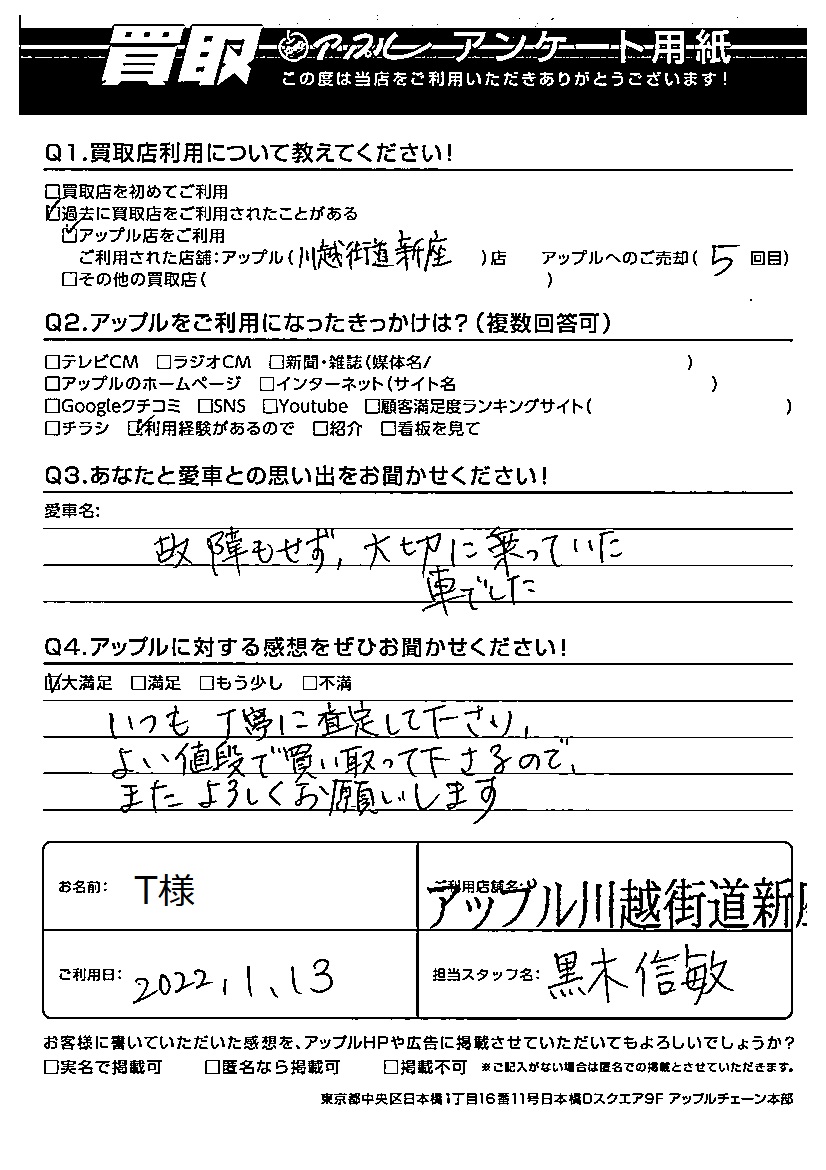 買取 アップル アンケート用紙
この度は当店をご利用いただきありがとうございます!
Q1.買取店利用について教えてください!
□買取店を初めてご利用
☑過去に買取店をご利用されたことがある
☑アップル店をご利用
ご利用された店舗:アップル(川越街道新座)店 アップルへのご売却(5回目)
□その他の買取店( )
Q2.アップルをご利用になったきっかけは?(複数回答可)
□テレビCM □ラジオCM □新聞・雑誌(媒体名/ )
□アップルのホームページ □インターネット(サイト名 )
□Googleクチコミ □SNS □Youtube □顧客満足度ランキングサイト( )
□チラシ ☑利用経験があるので □紹介 □看板を見て
Q3.あなたと愛車との思い出をお聞かせください!
愛車名:
故障もせず,大切に乗っていた
車でした
Q4.アップルに対する感想をぜひお聞かせください!
☑大満足 □満足 □もう少し □不満
いつも丁寧に査定して下さり,
よい値段で買い取って下さるので、
またよろしくお願いします
お名前: T様
ご利用店舗名: アップル川越街道新座
ご利用日: 2022.1.13
担当スタッフ名: 黒木信敏
お客様に書いていただいた感想を、アップルHPや広告に掲載させていただいてもよろしいでしょうか?
□実名で掲載可 □匿名なら掲載可 □掲載不可 ※ご記入がない場合は匿名での掲載とさせていただきます。
東京都中央区日本橋1丁目16番11号日本橋Dスクエア9F アップルチェーン本部